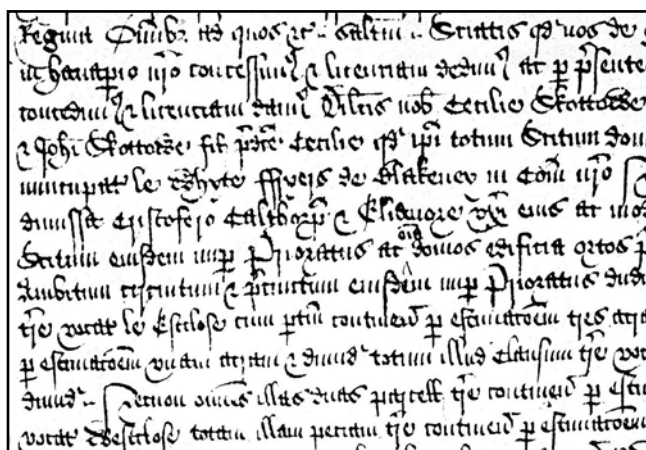 Regina Om̄ibȝ ad quos &c salt̄m Sciatis qd nos de
in hanapio nr̄o concessim̄ & licenciam dedim̄ ac p p̄sente
concedim̄ & licenciam dam̄ Dil̄cis nob̄ Cecilie Skottowe
& Joh̄i Skottowe fil p̄dc̄e Cecilie qd ip̄i totum Scitum
nuncupat le Whyte ffreers de Blakeney in Com̄ nr̄o
dimissa Cristofero Calthorp & Elianore vx̄i eius ac
Scitum eiusdem nup Prioratus ac om̄ domos edificia ortos
Ambitum circuitum & p̄cinctum eiusdem nup Prioratus
tr̄e vocat le Estclose cum ptin̄ continen̄ p estimacōem tres acra
p estimacōem vnam acram & dimid totum illud Clausum tr̄e voc
dimid Necnon om̄es illas duas parcell tr̄e continen̄ p estim
vocat Westclose totam illam peciam tr̄e continen̄ p estimacōem